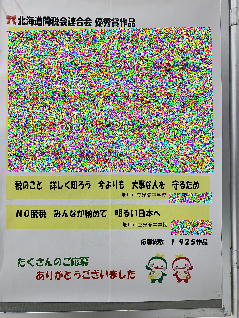 北海道間税会連合会 優秀賞作品
税のこと 詳しく知ろう 今よりも 大事な人を 守るため
NO脱税 みんなが納めて 明るい日本へ
応募総数 1,925作品
たくさんのご応募
ありがとうございました